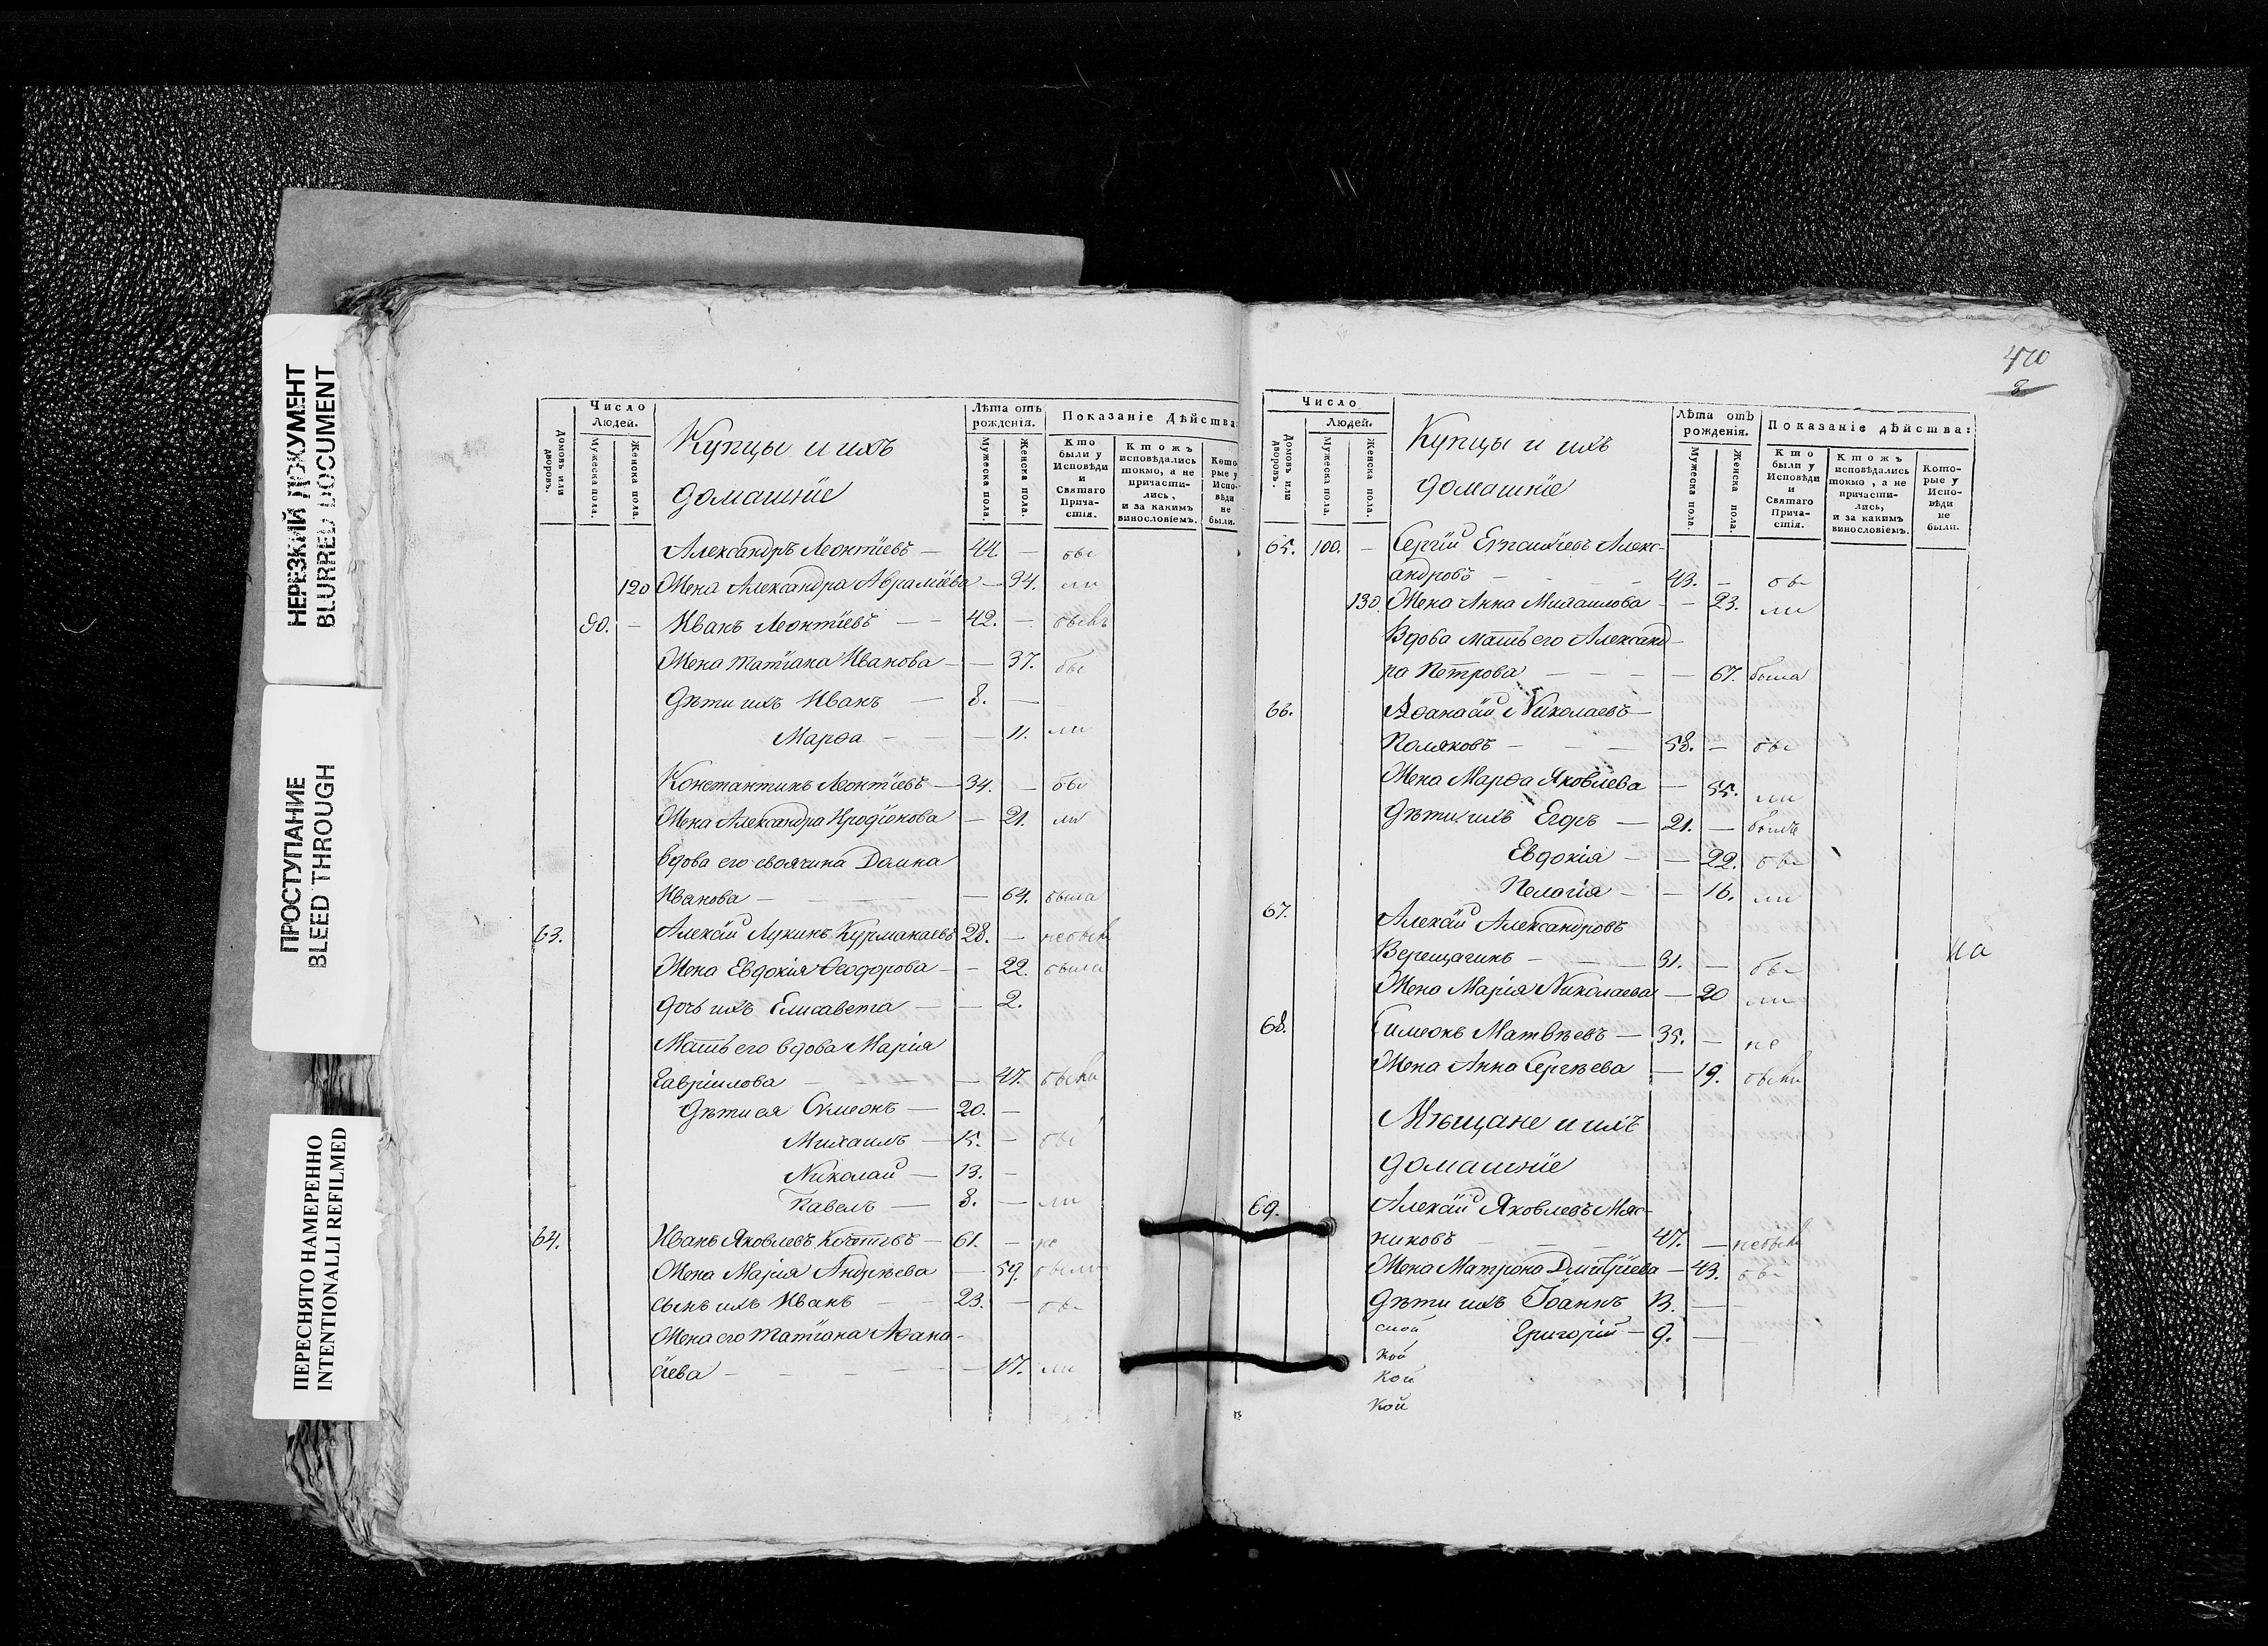 НЕРЕЗКИЙ ДОКУМЕНТ
BLURRED DOCUMENT
ПРОСТУПАНИЕ
BLEED THROUGH
ПЕРЕСНЯТО НАМЕРЕННО
INTENTIONALLI REFILMED
Число
Людей.
Домовъ или дворовъ.
Мужеска пола.
Женска пола.
Купцы и ихъ
домашніе
Лѣта отъ рожденія.
Мужеска пола.
Женска пола.
Показаніе Дѣйства:
Кто были у Исповѣди и Святаго Прича-стія.
Ктожъ исповѣдались токмо, а не причасти-лись, и за какимъ винословіемъ.
Кото-рые у Испо-вѣди не были.
Александръ Леонтіевъ — 44. — бы
120 Жена Александра Авраміева — 34. ли
90. — Иванъ Леонтіевъ — — 42. —
Жена Татіана Иванова — — 37. бы
Дѣти ихъ Иванъ — 8. —
Марѳа — — — 11. ли
Константинъ Леонтіевъ — 34. — бы
Жена Александра Иродіонова — 21. ли
Вдова его своячина Домна
Иванова — — — — 64. была
63. Алексѣй Лукинъ Курманаевъ 28. — небылъ
Жена Евдокія Ѳеодорова — — 22. была
дочь ихъ Елисавета — — 2.
Мать его вдова Марія
Гавріилова — — — 47. была
Дѣти ея Симеонъ — 20. —
Михаилъ — 15. — бы
Николай — 13. —
Павелъ — 8. — ли
64. Иванъ Яковлевъ — 61. — не
Жена Марія Андрѣева — 59. были
сынъ ихъ Иванъ — 23. — бы
Жена его Татіана Аѳана-
сіева — — — — — 17. ли
470
8
Число
Людей.
Домовъ или дворовъ.
Мужеска пола.
Женска пола.
Купцы и ихъ
домашніе
Лѣта отъ рожденія.
Мужеска пола.
Женска пола.
Показаніе дѣйства:
Кто были у Исповѣди и Святаго Прича-стія.
Ктожъ исповѣдались токмо, а не причасти-лись, и за какимъ винословіемъ.
Кото-рые у Испо-вѣди не были.
65. 100. — Сергій Алекс-
андровъ — — — 43. — бы
130. Жена Анна Михаилова — — 23. ли
Вдова мать его Александ-
ра Петрова — — — — 67. была
66. Аѳанасій Николаевъ
Поляковъ — — — 58. — бы
Жена Марѳа Яковлева — 55. ли
Дѣти ихъ Егоръ — 21. — былъ
Евдокія — — 22. бы
Пелагія — — 16. ли
67. Алексѣй Александровъ
Верещагинъ — — — 31. — бы
Жена Марія Николаева — 20 ли
на
68. Симеонъ Матвѣевъ — 35. — не
Жена Анна Сергѣева — 19. были
Мѣщане и ихъ
домашніе
69. Алексѣй Яковлевъ Мяс-
никовъ — — — 47. — небылъ
Жена Матрона Дмитріева — 43. бы
Дѣти ихъ Іоаннъ 13. — —
Григорій — 9. — —
ской
кой
кой
кой